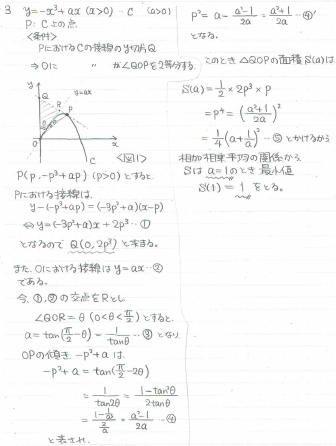 3 y=-x³+ax (x>0) … C (a>0)
P: C上の点
<条件>
PにおけるCの接線のy切片Q
⇒ Oに 〃 が∠QOPを2等分する.
y
y=ax
Q
R
P
θ
O
x
C
<図1>
P(p, -p³+ap) (p>0)とすると,
Pにおける接線は,
y-(-p³+ap)=(-3p²+a)(x-p)
⇔ y=(-3p²+a)x+2p³ …①
となるので Q(0, 2p³) と求まる.
また, Oにおける接線は y=ax …②
である.
今, ①, ②の交点をRとし,
∠QOR=θ (0<θ<π/2)とすると,
a=tan(π/2-θ)=1/tanθ …③ となり
OPの傾き -p²+a は,
-p²+a=tan(π/2-2θ)
=1/tan2θ=(1-tan²θ)/2tanθ
=(1-1/a²)/(2/a)=(a²-1)/2a …④
と表され.
p²=a-(a²-1)/2a=(a²+1)/2a …④'
となる.
このとき △QOPの面積S(a)は
S(a)=1/2×2p³×p
=p⁴=((a²+1)/2a)²
=1/4(a+1/a)² …⑤ とかけるから
相加相乗平均の関係から
Sは a=1のとき 最小値
S(1)=1 をとる.